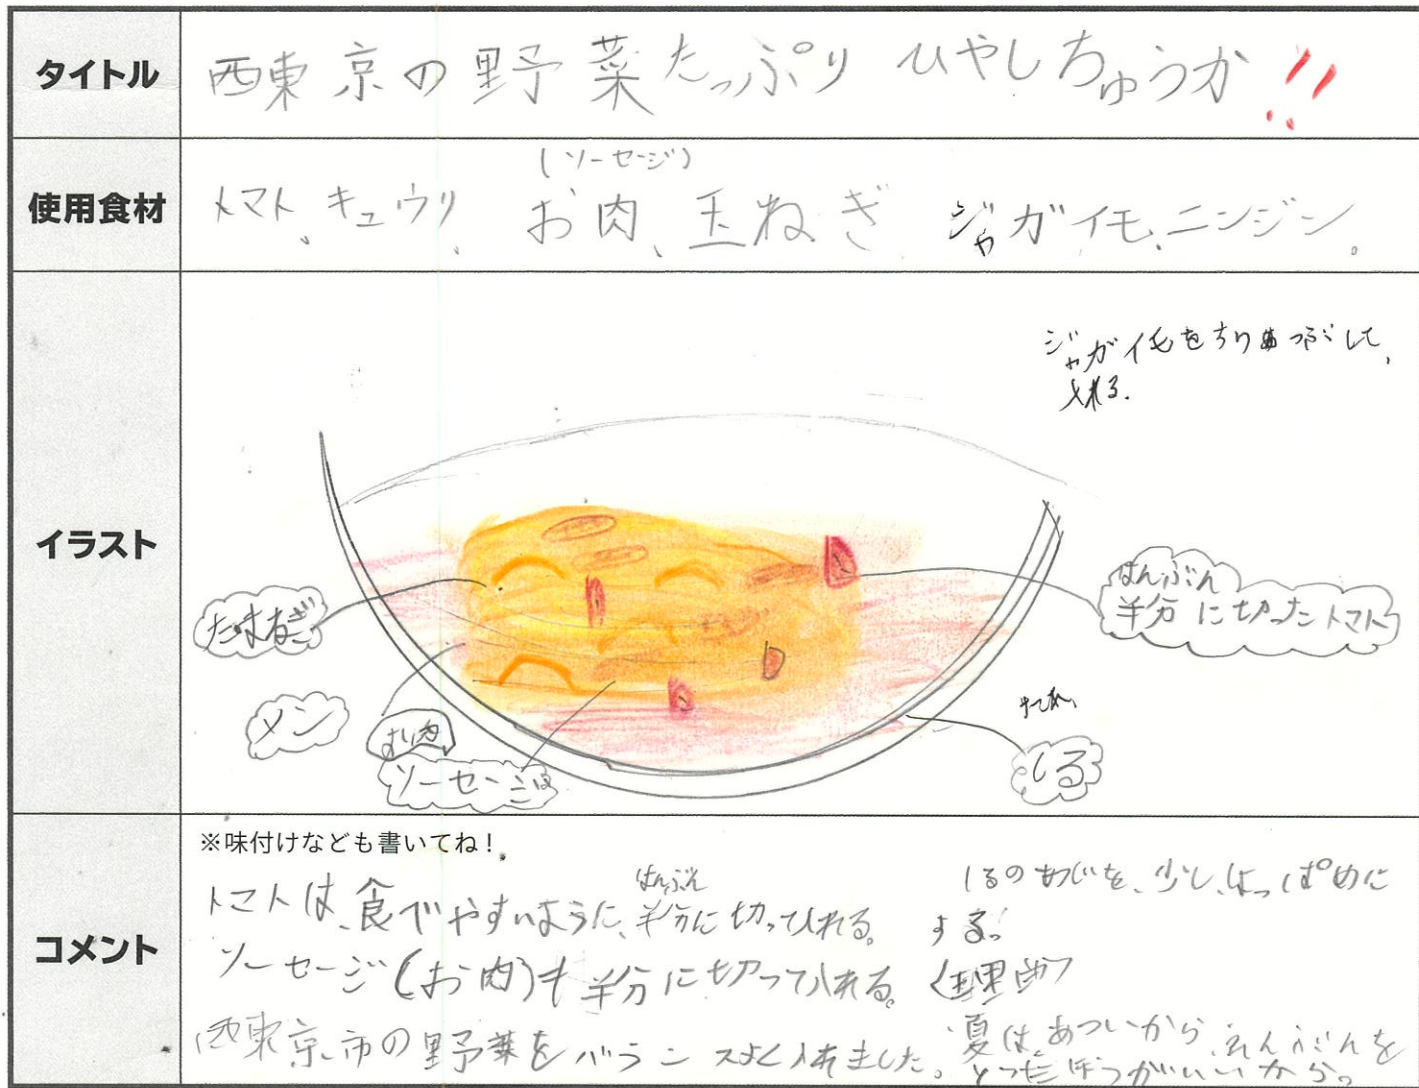 タイトル
西東京の野菜たっぷり ひやしちゅうか!!
使用食材
(ソーセージ)
トマト、キュウリ、お肉、玉ねぎ ジャガイモ、ニンジン。
イラスト
ジャガイモをすりつぶして、
入れる。
たまねぎ
メン
お肉
ソーセージ
はんぶん
半分に切ったトマト
しる
コメント
※味付けなども書いてね!
はんぶん
トマトは、食べやすいように、半分に切って入れる。
ソーセージ(お肉)も半分に切って入れる。
西東京市の野菜をバランスよく入れました。
しるのあじを、少し、しょっぱめに
する。
<理由>
夏は、あついから、えんぶんを
とったほうがいいから。